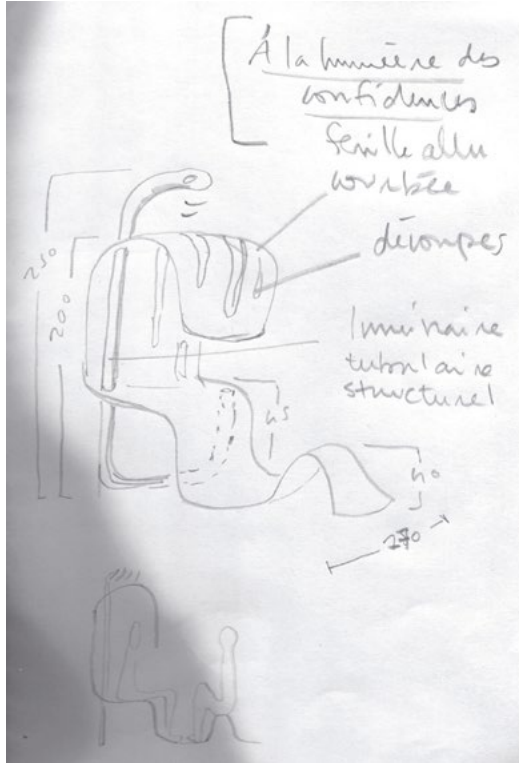 À la lumière des
confidences
feuille alu
courbée
découpes
250
200
luminaire
tubulaire
structurel
45
40
270